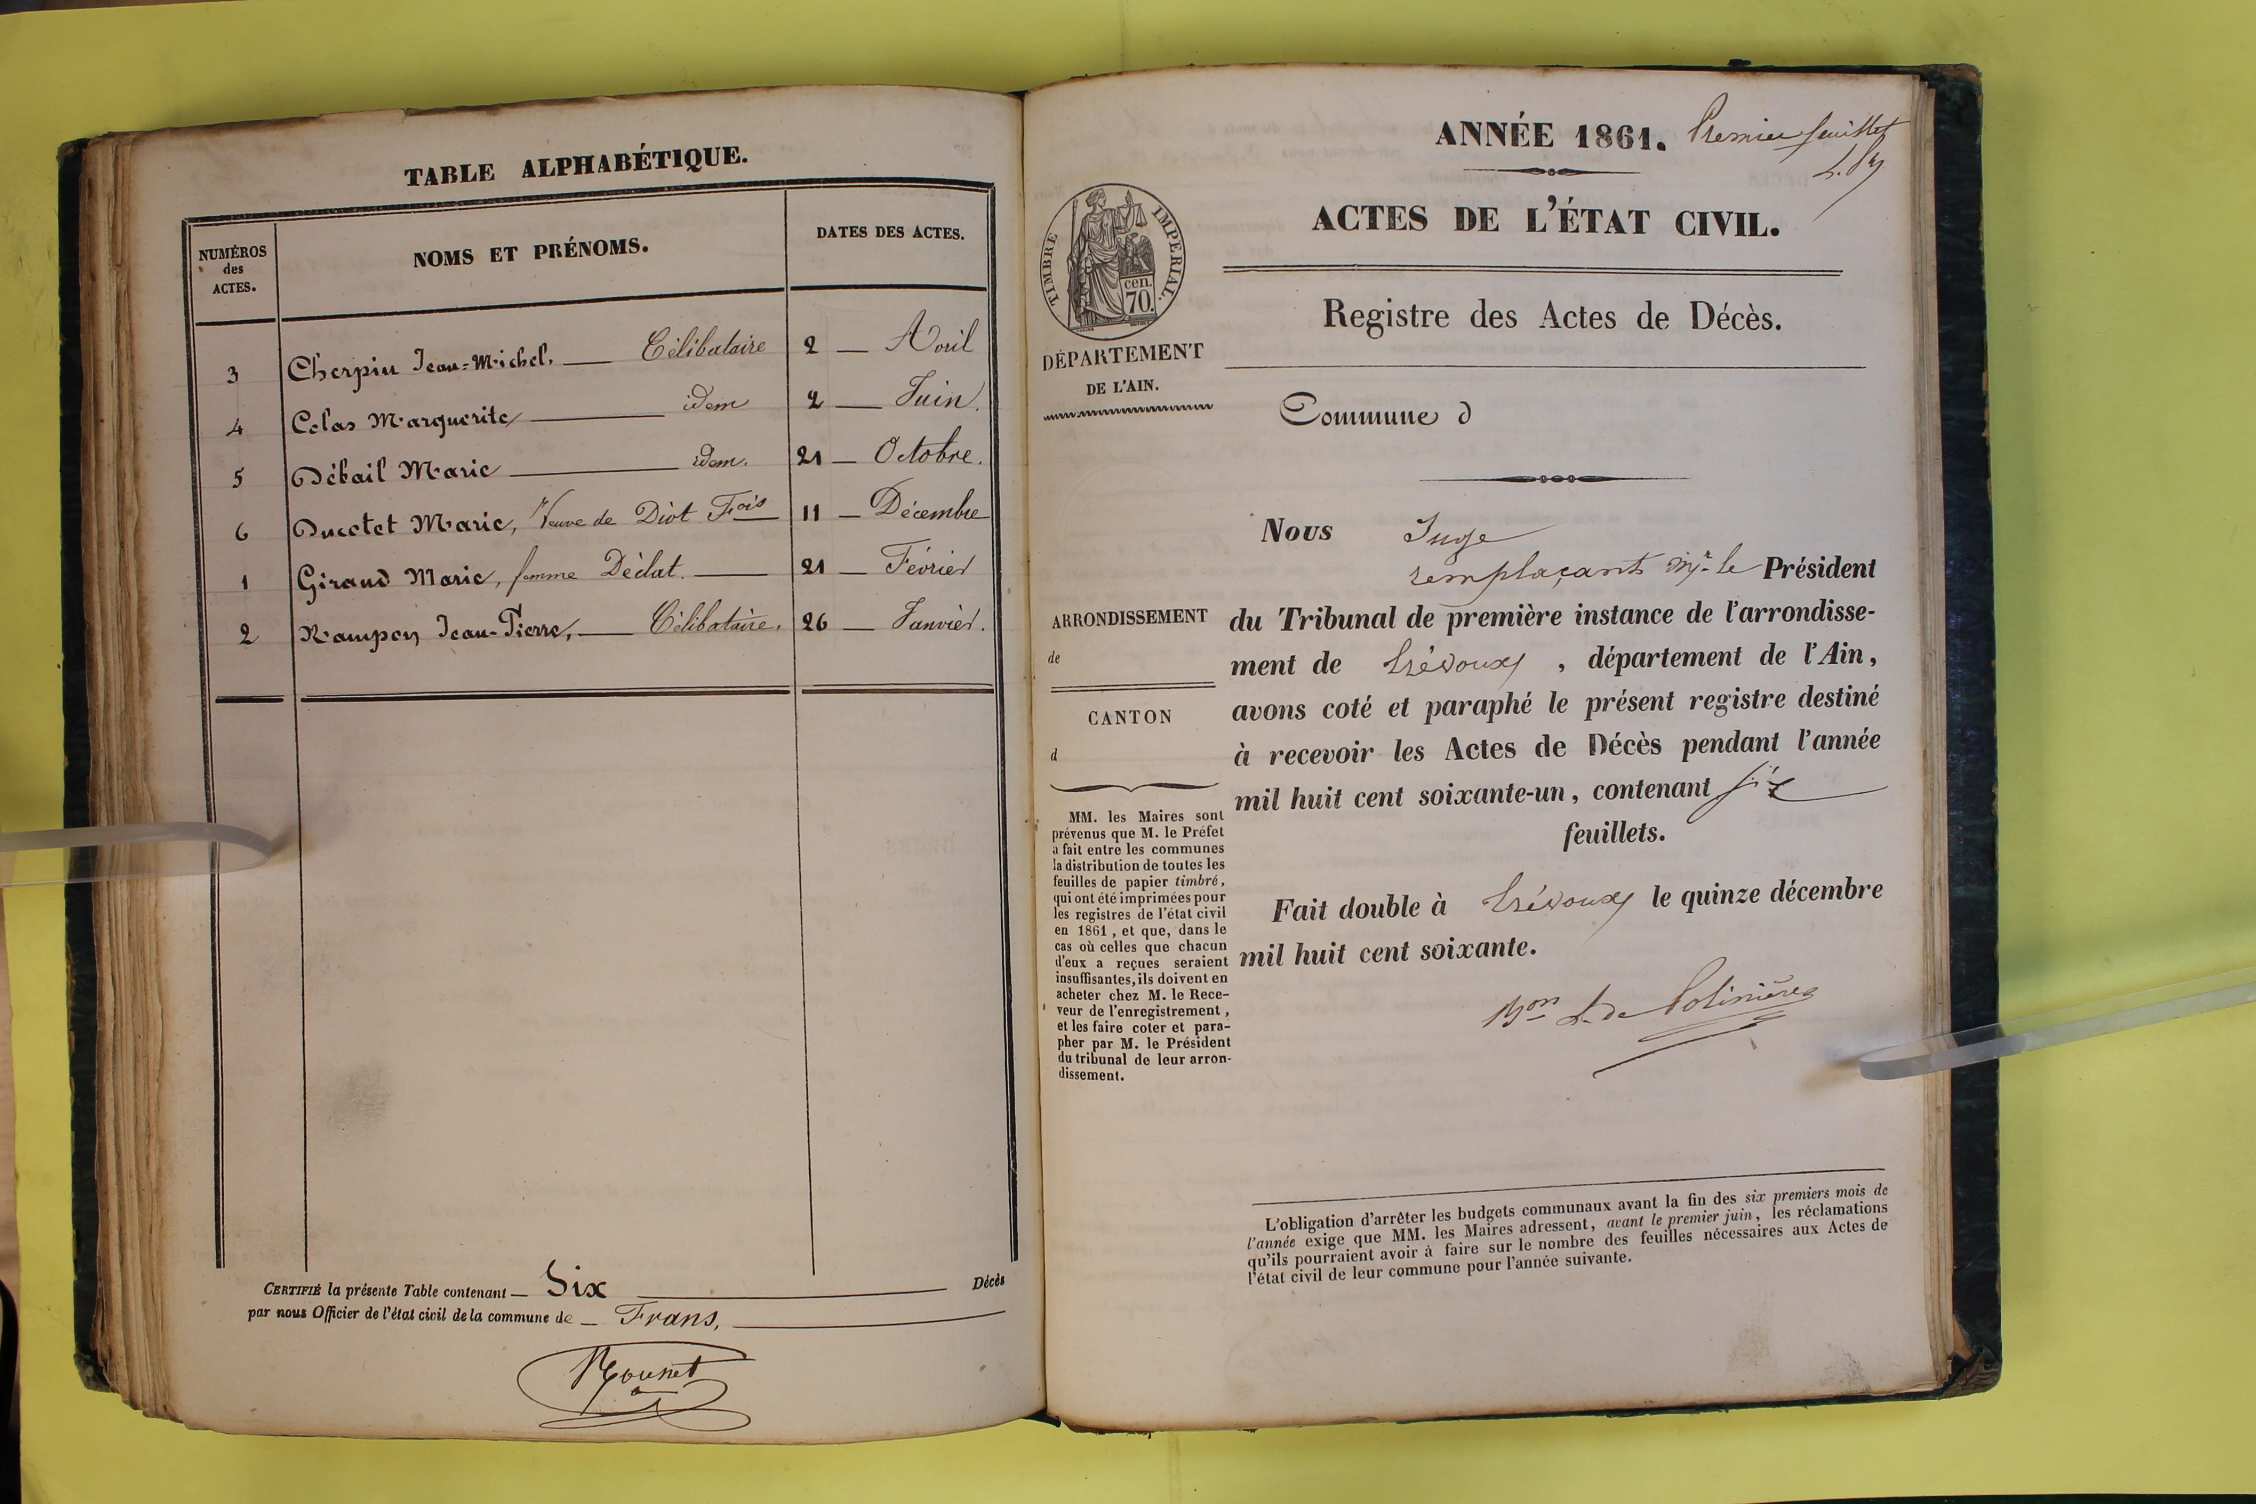 TABLE ALPHABÉTIQUE.
NUMÉROS
des
ACTES.
NOMS ET PRÉNOMS.
DATES DES ACTES.
3 Cherpin Jean-Michel. — Célibataire 2 — Avril
4 Colas Marguerite — idem 2 — Juin.
5 Débail Marie — idem. 21 — Octobre.
6 Ducotet Marie, Veuve de Diot Fois 11 — Décembre
1 Giraud Marie, femme Déclat. — 21 — Février
2 Rampon Jean-Pierre, — Célibataire. 26 — Janvier.
CERTIFIÉ la présente Table contenant — Six — Décès
par nous Officier de l'état civil de la commune de — Frans,
ANNÉE 1861. Premier feuillet
ACTES DE L'ÉTAT CIVIL.
TIMBRE IMPERIAL.
cen.
70.
Registre des Actes de Décès.
DÉPARTEMENT
DE L'AIN.
Commune d
Nous Juge
remplaçant Mr. le Président
ARRONDISSEMENT
de
CANTON
d
du Tribunal de première instance de l'arrondisse-
ment de Trévoux , département de l'Ain,
avons coté et paraphé le présent registre destiné
à recevoir les Actes de Décès pendant l'année
mil huit cent soixante-un, contenant six
feuillets.
Fait double à Trévoux le quinze décembre
mil huit cent soixante.
Bon L. de Polinière
MM. les Maires sont
prévenus que M. le Préfet
a fait entre les communes
la distribution de toutes les
feuilles de papier timbré,
qui ont été imprimées pour
les registres de l'état civil
en 1861, et que, dans le
cas où celles que chacun
d'eux a reçues seraient
insuffisantes, ils doivent en
acheter chez M. le Rece-
veur de l'enregistrement,
et les faire coter et para-
pher par M. le Président
du tribunal de leur arron-
dissement.
L'obligation d'arrêter les budgets communaux avant la fin des six premiers mois de
l'année exige que MM. les Maires adressent, avant le premier juin, les réclamations
qu'ils pourraient avoir à faire sur le nombre des feuilles nécessaires aux Actes de
l'état civil de leur commune pour l'année suivante.